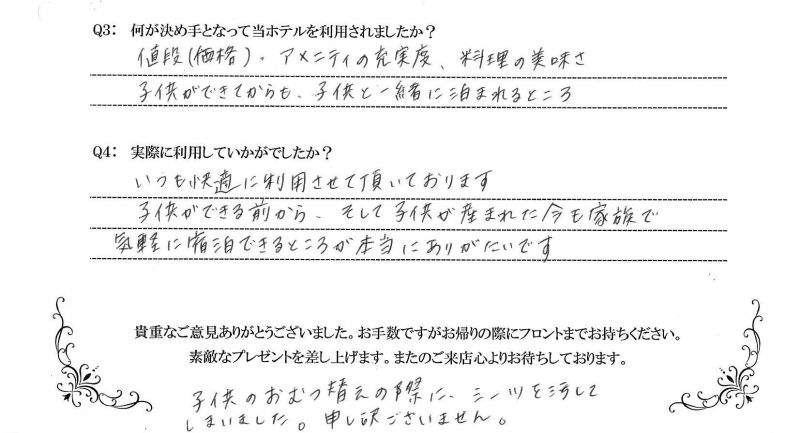 Q3： 何が決め手となって当ホテルを利用されましたか？
値段(価格)・アメニティの充実度、料理の美味さ
子供ができてからも、子供と一緒に泊まれるところ
Q4： 実際に利用していかがでしたか？
いつも快適に利用させて頂いております
子供ができる前から、そして子供が産まれた今も家族で
気軽に宿泊できるところが本当にありがたいです
貴重なご意見ありがとうございました。お手数ですがお帰りの際にフロントまでお持ちください。
素敵なプレゼントを差し上げます。またのご来店心よりお待ちしております。
子供のおむつ替えの際に、シーツを汚して
しまいました。申し訳ございません。